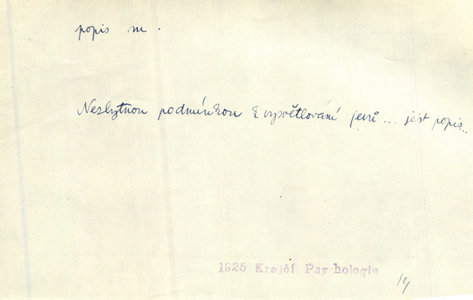 popis m.
Nezbytnou podmínkou k vysvětlování jevů... jest popis..
1925 Krejčí Psychologie
14